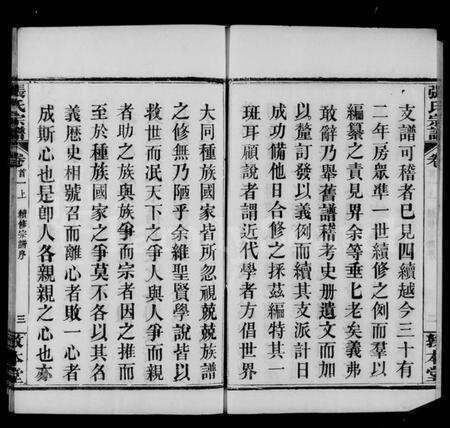 張氏宗譜
卷
敦本堂
支譜可稽者已見四續越今三十有
二年房眾準一世續修之例而羣以
編纂之責見畀余等垂匕老矣義弗
敢辭乃舉舊譜稽考史册遺文而加
以釐訂發以義例而續其支派計日
成功備他日合修之採茲編特其一
斑耳顧說者謂近代學者方倡世界
大同種族國家皆所忽視兢兢族譜
之修無乃陋乎余維聖賢學說皆以
救世而泯天下之爭人與人爭而親
者助之族與族爭而宗者因之推而
至於種族國家之爭莫不各以其名
義歷史相號召而離心者敗一心者
成斯心也是卽人各親親之心也亦
張氏宗譜
卷首一上 續修宗譜序
三
敦本堂